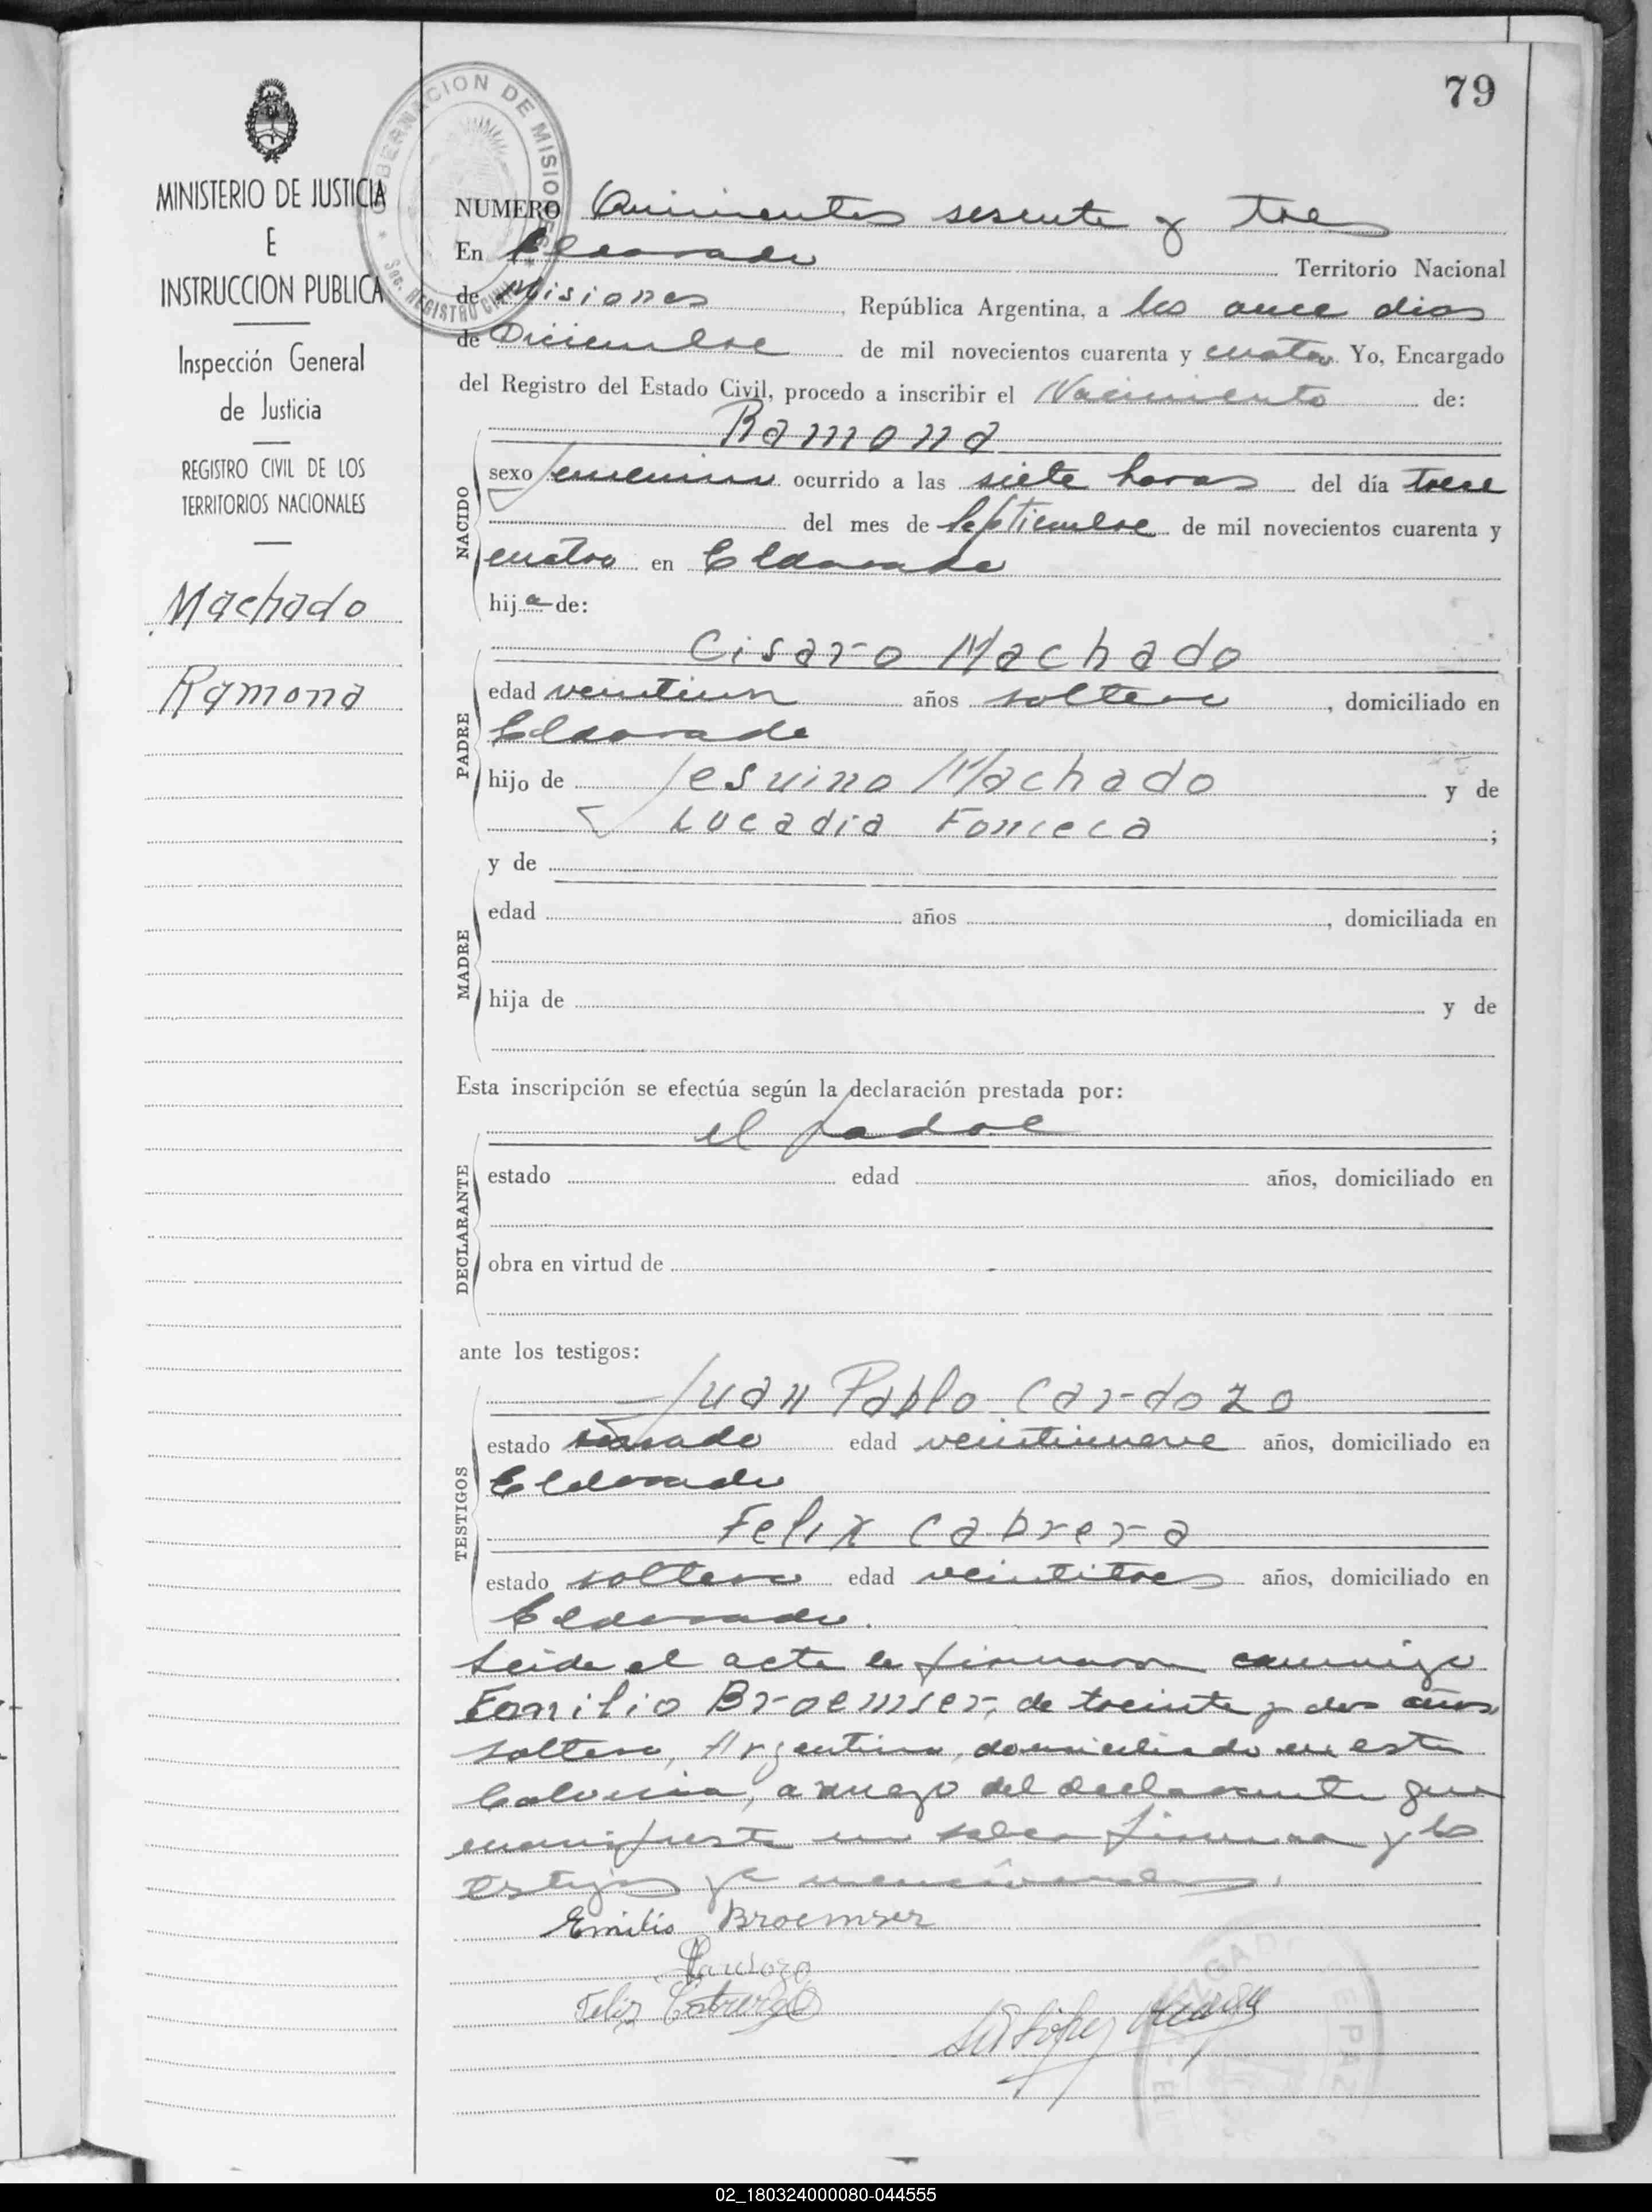 79
MINISTERIO DE JUSTICIA
E
INSTRUCCION PUBLICA
Inspección General
de Justicia
REGISTRO CIVIL DE LOS
TERRITORIOS NACIONALES
Machado
Ramona
GOBERNACION DE MISIONES
Sec. REGISTRO CIVIL
NUMERO Quinientos sesenta y tres
En Eldorado Territorio Nacional
de Misiones, República Argentina, a los once dias
de Diciembre de mil novecientos cuarenta y cuatro Yo, Encargado
del Registro del Estado Civil, procedo a inscribir el Nacimiento de:
Ramona
NACIDO
sexo femenino ocurrido a las siete horas del día trece
del mes de Septiembre de mil novecientos cuarenta y
cuatro en Eldorado
hija de:
Cisaro Machado
PADRE
edad veintiun años soltero, domiciliado en
Eldorado
hijo de Jesuino Machado y de
Lucadia Fonceca;
y de
MADRE
edad años, domiciliada en
hija de y de
Esta inscripción se efectúa según la declaración prestada por:
el padre
DECLARANTE
estado edad años, domiciliado en
obra en virtud de
ante los testigos:
Juan Pablo Cardozo
TESTIGOS
estado casado edad veintinueve años, domiciliado en
Eldorado
Felix Cabrera
estado soltero edad veintitres años, domiciliado en
Eldorado.
Leida el acta la firmaron conmigo
Emilio Broemser, de treinta y dos años
soltero, Argentino, domiciliado en esta
Colonia, a ruego del declarante que
manifiesta no saber firmar y los
testigos ya mencionados.
Emilio Broemser
Cardozo
Felix Cabrera
02_180324000080-044555